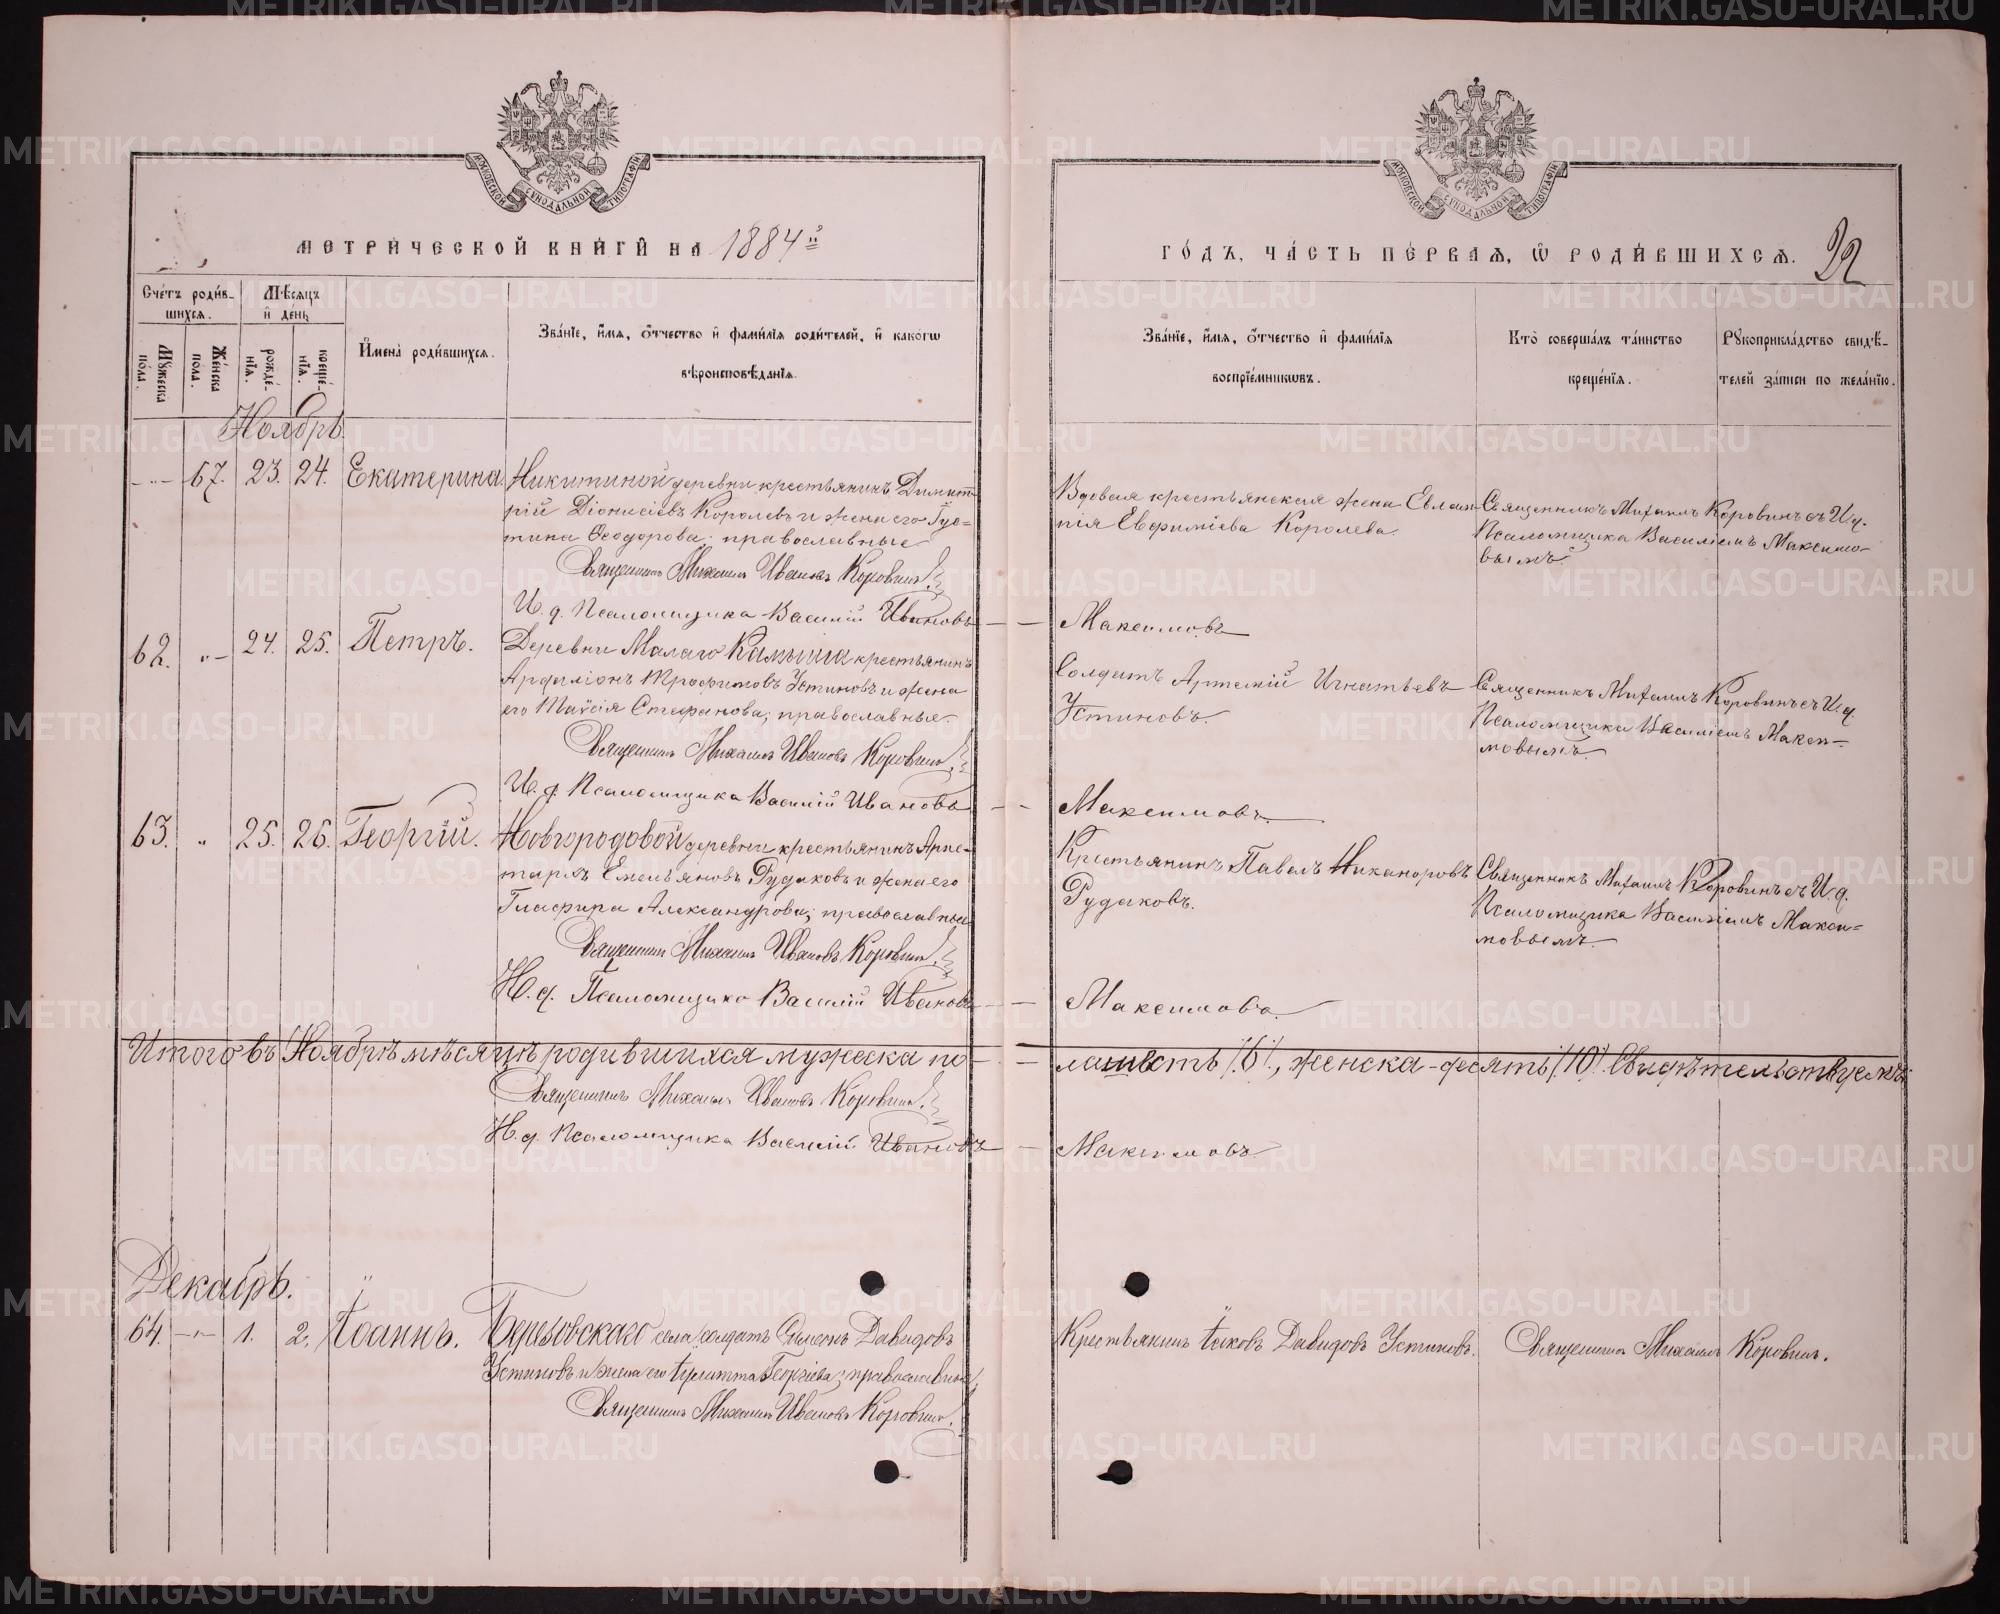 МОСКОВСКОЙ СУНОДАЛЬНОЙ ТИПОГРАФІИ
МОСКОВСКОЙ СУНОДАЛЬНОЙ ТИПОГРАФІИ
МЕТРИЧЕСКОЙ КНИГИ НА 1884й
ГОДЪ, ЧАСТЬ ПЕРВАЯ, Ѽ РОДИВШИХСЯ. 22
Счетъ родив-
шихся.
Мужеска пола.
Женска пола.
Мѣсяцъ
и день
рожде-
нія.
креще-
нія.
Имена родившихся.
Званіе, имя, ѻтчество и фамилія родителей, и какогѡ
вѣроисповѣданія.
Званіе, имя, ѻтчество и фамилія
воспріемниковъ.
Кто совершалъ таинство
крещенія.
Рукоприкладство свидѣ-
телей записи по желанію.
Ноябрь.
-"- 67. 23. 24. Екатерина.
Никитиной деревни крестьянинъ Димит-
рій Діонисіевъ Королевъ и жена его Іус-
тина Ѳеодорова; православные.
Священникъ Михаилъ Ивановъ Коровинъ.
И. д. Псаломщика Василій Ивановъ — — Максимовъ
Вдовая крестьянская жена Евлам-
пія Евфиміева Королева.
Священникъ Михаилъ Коровинъ съ И.д.
Псаломщика Василіемъ Максимо-
вымъ
62. "- 24. 25. Петръ.
Деревни Малаго Камыша крестьянинъ
Ардаліонъ Трофимовъ Устиновъ и жена
его Таисія Стефанова; православные.
Священникъ Михаилъ Ивановъ Коровинъ.
И. д. Псаломщика Василій Ивановъ — — Максимовъ.
Солдатъ Артемій Игнатьевъ
Устиновъ.
Священникъ Михаилъ Коровинъ съ И.д.
Псаломщика Василіемъ Макси-
мовымъ.
63. " 25. 26. Георгій.
Новгородовой деревни крестьянинъ Арис-
тархъ Емельяновъ Рудаковъ и жена его
Глафира Александрова; православные
Священникъ Михаилъ Ивановъ Коровинъ.
И. д. Псаломщика Василій Ивановъ — — Максимовъ.
Крестьянинъ Павелъ Никаноровъ
Рудаковъ.
Священникъ Михаилъ Коровинъ съ И.д.
Псаломщика Василіемъ Макси-
мовымъ.
Итого въ Ноябрѣ мѣсяцѣ родившихся мужеска по- — ла шесть /6/, женска - десять /10/. Свидѣтельствуемъ:
Священникъ Михаилъ Ивановъ Коровинъ.
И. д. Псаломщика Василій Ивановъ — Максимовъ
Декабрь.
64. -"- 1. 2. Іоаннъ.
Березовскаго села солдатъ Симеонъ Давидовъ
Устиновъ и жена его Іулитта Георгіева; православные.
Священникъ Михаилъ Ивановъ Коровинъ.
Крестьянинъ Іаковъ Давидовъ Устиновъ.
Священникъ Михаилъ Коровинъ.
METRIKI.GASO-URAL.RU